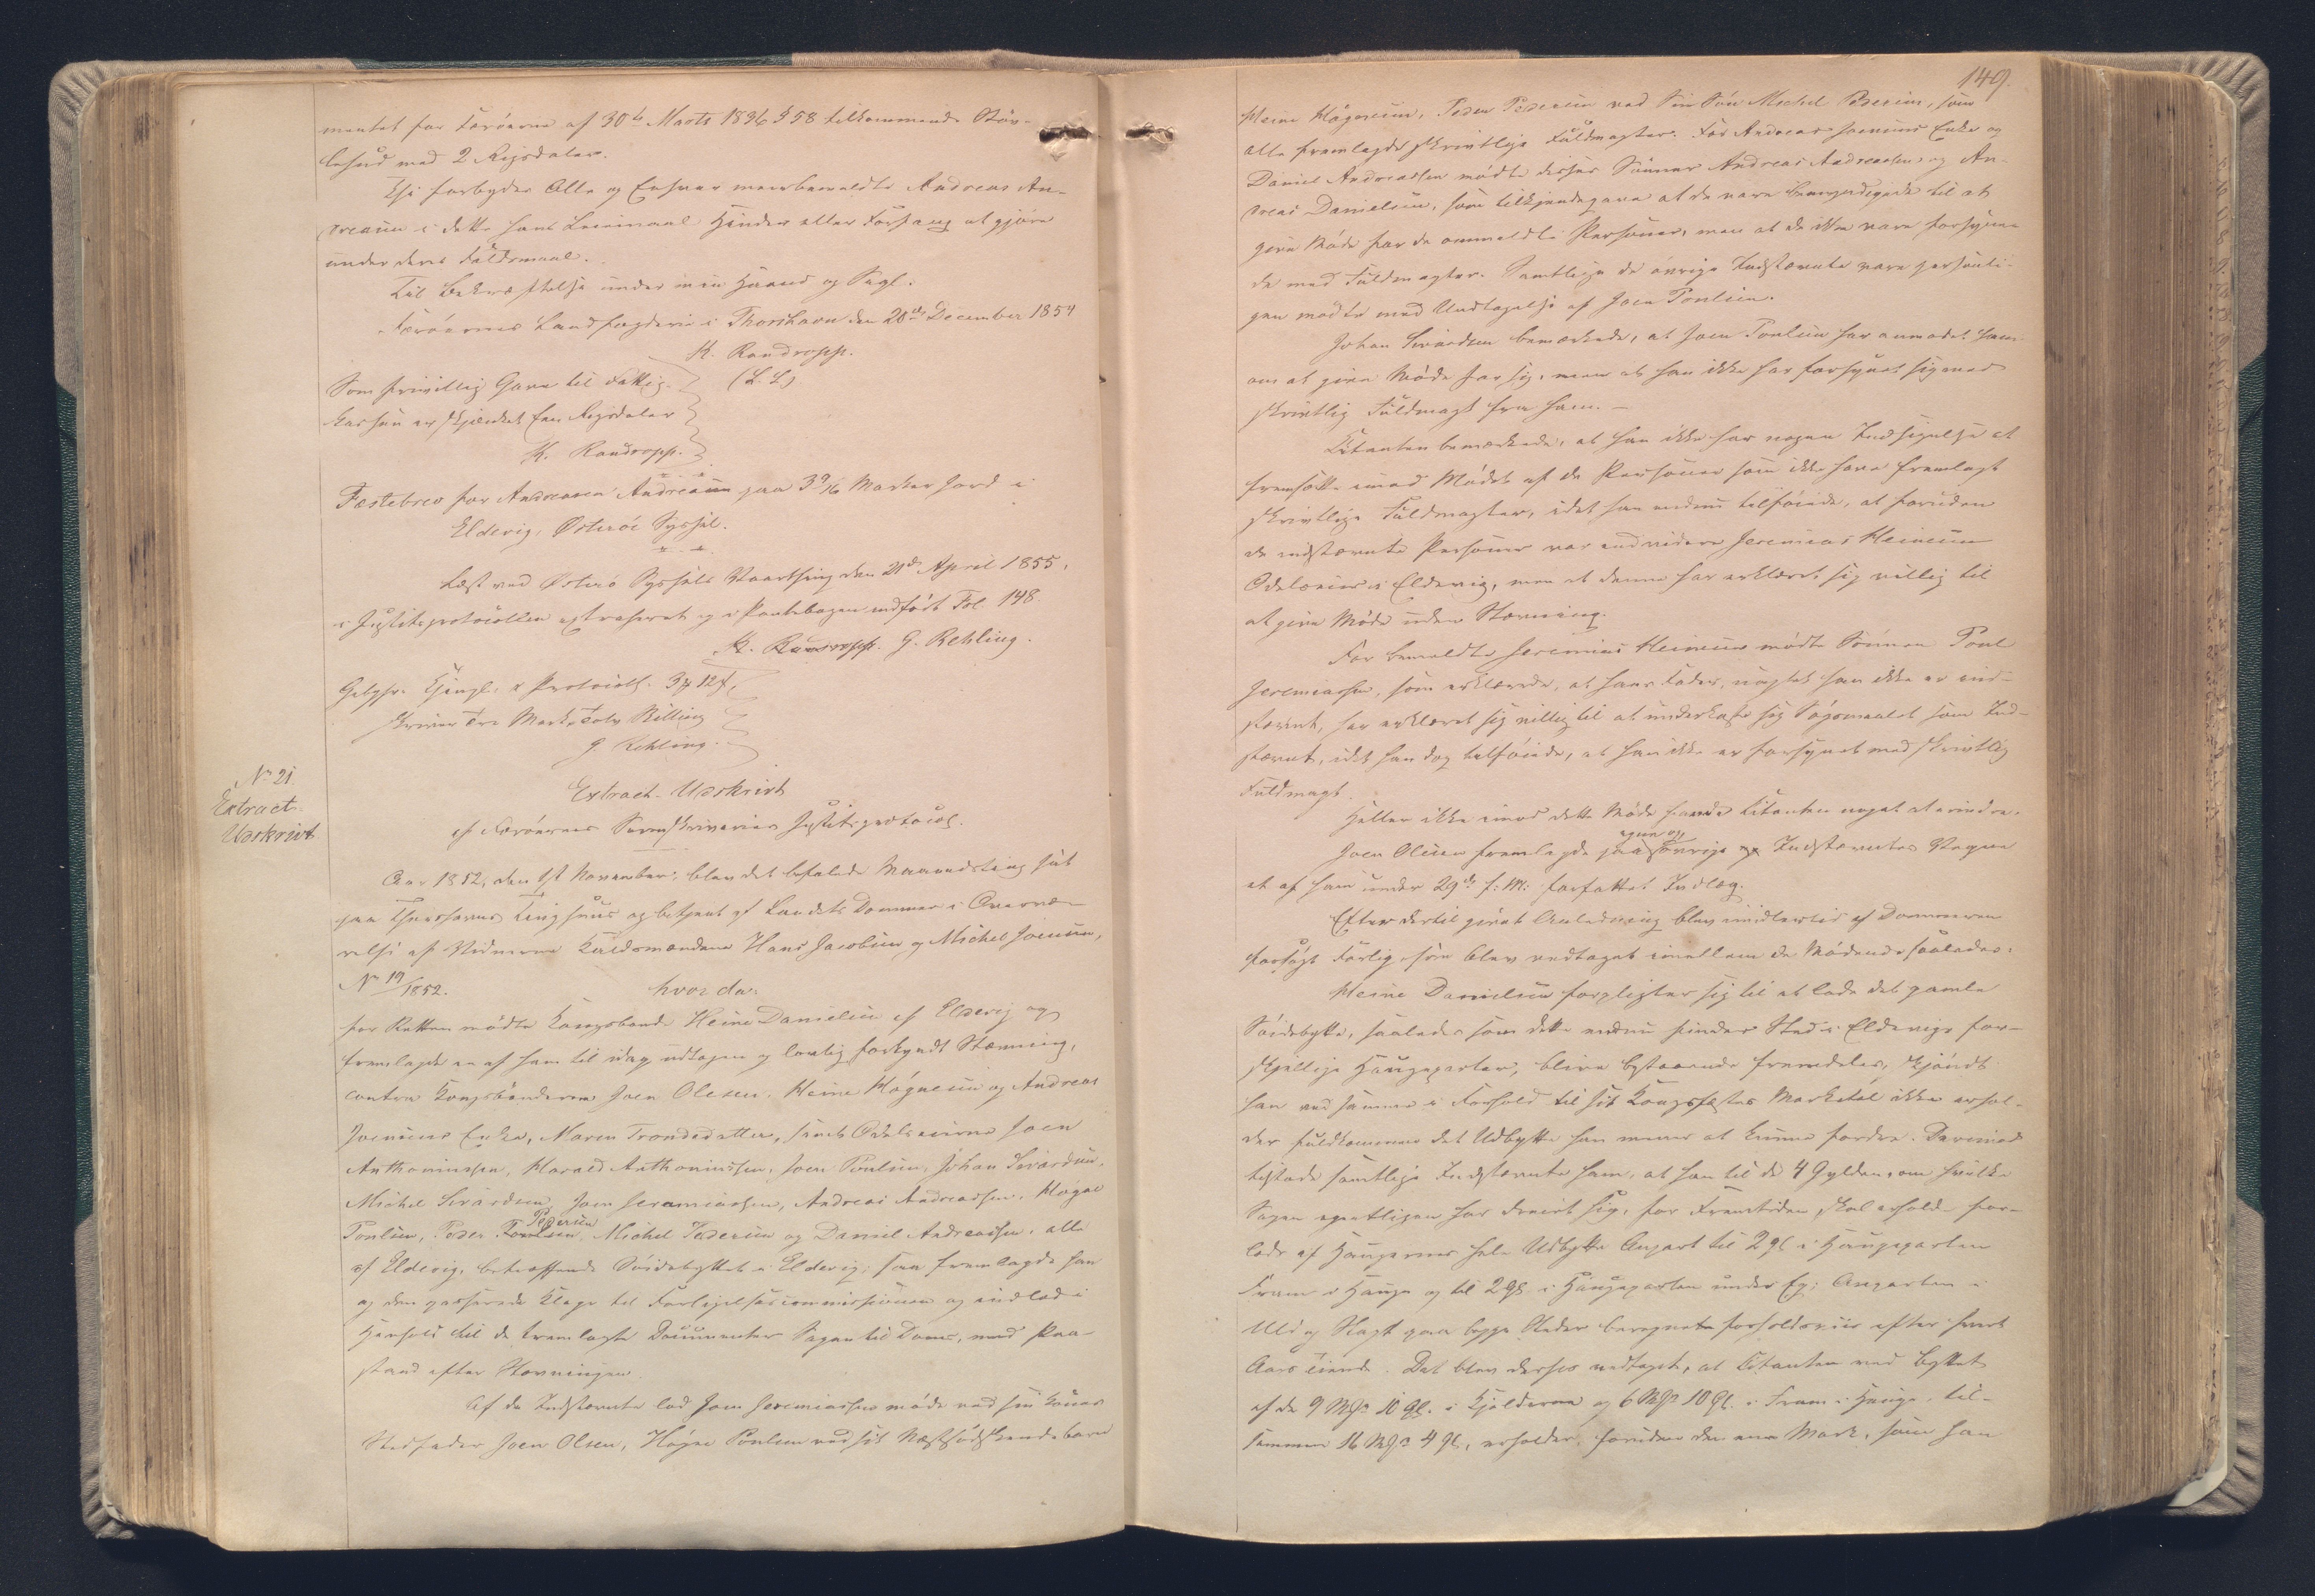 mentet for Færöerne af 30te Marts 1836 § 58 tilkommende Stöv-
lehud med 2 Rigsdaler.
Thi forbydes Alle og Enhver meerbemeldte Andreas An-
dreasen i dette hans Leiemaal Hinder eller Forfang at gjöre
under deres Faldsmaal.
Til Bekræftelse under min Haand og Segl.
Færöernes Landfogderie i Thorshavn den 20de December 1854
H. Randropp.
(L. S.)
Som frivillig Gave til Fattig-
kassen er skjænket Een Rigsdaler
H. Randropp.
Fæstebrev for Andreas Andreasen paa 3 9/16 Marker Jord i
Eldevig, Österöe Syssel.
Læst ved Österö Syssels Vaarthing den 21de April 1855,
i Justitsprotocollen extraheret og i Pantebogen indfört Fol. 148.
H. Randropp. G. Rehling.
Gebyhr. Thingl. & Protocoll. 3 12
skriver Tre Mark, Tolv Skilling
G. Rehling.
No 21.
Extract-
Udskrivt
Extract-Udskrivt
af Færöernes Sorenskriveries Justitsprotocol.
Aar 1852, den 1ste November, blev det befalede Maanedsting sat
paa Thorshavns Tinghuus og betjent af Landets Dommer i Overvæ-
relse af Vidnerne Kaldsmændene Hans Jacobsen og Michel Joensen,
No 19/1852.
hvor da:
for Retten mödte Kongsbonde Heine Danielsen af Eldevig og
fremlagde en af ham til idag udtagen og lovlig forkyndt Stævning,
contra Kongsbönderne Joen Olesen, Heine Högnesen og Andreas
Joensens Enke, Maren Trondsdatter, samt Odelseierne Joen
Anthoniussen, Harald Anthoniussen, Joen Poulsen, Johan Sivardsen,
Michel Sivardsen, Joen Jeremiassen, Andreas Andreassen, Högne
Poulsen, Peder Pedersen, Michel Pedersen og Daniel Andreassen, alle
af Eldevig, betræffende Söidebyttet i Eldevig; han fremlagde han
og den passerede Klage til Forligelsescommissionen og indlod i
Henhold til de fremlagte Documenter Sagen til Doms, med Paa-
stand efter Stævningen.
Af de Indstævnte lod Joen Jeremiassen möde ved sin Kones
Stedfader Joen Olsen, Högne Poulsen ved sit Næstsödskendebarn
149.
Heine Högnesen, Peder Pedersen ved Sin Sön Michel Pedersen, som
alle fremlagde skrivtlige Fuldmagter. For Andreas Joensens Enke og
Daniel Andreassen mödte disses Sönner Andreas Andreassen og An-
dreas Danielsen, som tilkjendegave at de vare bemyndigede til at
give Möde for de ommeldte Personer, men at de ikke vare forsyne-
de med Fuldmagter. Samtlige de övrige Indstævnte vare personli-
gen mödte med Undtagelse af Joen Poulsen.
Johan Sivardsen bemærkede, at Joen Poulsen har anmodet ham
om at give Möde for sig, men at han ikke har forsynet sig med
skrivtlig Fuldmagt fra ham. –
Citanten bemærkede, at han ikke har nogen Indsigelse at
fremsætte imod Mödet af de Personer som ikke have fremlagt
skrivtlige Fuldmagter, idet han endnu tilföiede, at foruden
de indstævnte Personer var endvidere Jeremias Heinesen
Odelseier i Eldevig, men at denne har erklæret sig villig til
at give Möde uden Stævning.
For bemeldte Jeremias Heinesen mödte Sönnen Poul
Jeremiassen, som erklærede, at hans Fader, uagtet han ikke er ind-
stævnt, har erklæret sig villig til at underkaste sig Sögsmaalet som Ind-
stævnt, idet han dog tilföiede, at han ikke er forsynet med skrivtlig
Fuldmagt.
Heller ikke imod dette Möde havde Citanten noget at erindre.
Joen Olesen fremlagde paa egne og övrige Indstævntes Vegne
et af ham under 29de f: M: forfattet Indlæg.
Efter dertil givet Anledning blev imidlertid af Dommeren
forsögt Forlig, som blev vedtaget imellem de Mödende saaledes:
Heine Danielsen forpligter sig til at lade det gamle
Söidebytte, saaledes som dette endnu finder Sted i Eldevigs for-
skjellige Haugeparter, blive bestaaende fremdeles, skjöndt
han ved samme i Forhold til sit Kongsfæstes Marketal ikke erhol-
der fuldkommen det Udbytte han mener at kunne fordre. Derimod
tilstode samtlige Indstævnte ham, at han til de 4 Gylden, om hvilke
Sagen egentligen har dreiet sig, for Fremtiden skal erholde for-
lods af Haugernes hele Udbytte Anpart til 2 gl i Haugeparten
Fram i Hauge og til 2 gl i Haugeparten under Eg; Anparten i
Uld og Slagt paa begge Steder beregnet forholdsviis efter hvert
Aars Tiende. Det blev derhos vedtaget, at Citanten ved Byttet
af de 9 Mk 10 gl. i Kjölderne og 6 Mk 10 gl. i Fram i Hauge, til-
sammen 16 Mk 4 gl, erholder foruden den ene Mark, som han